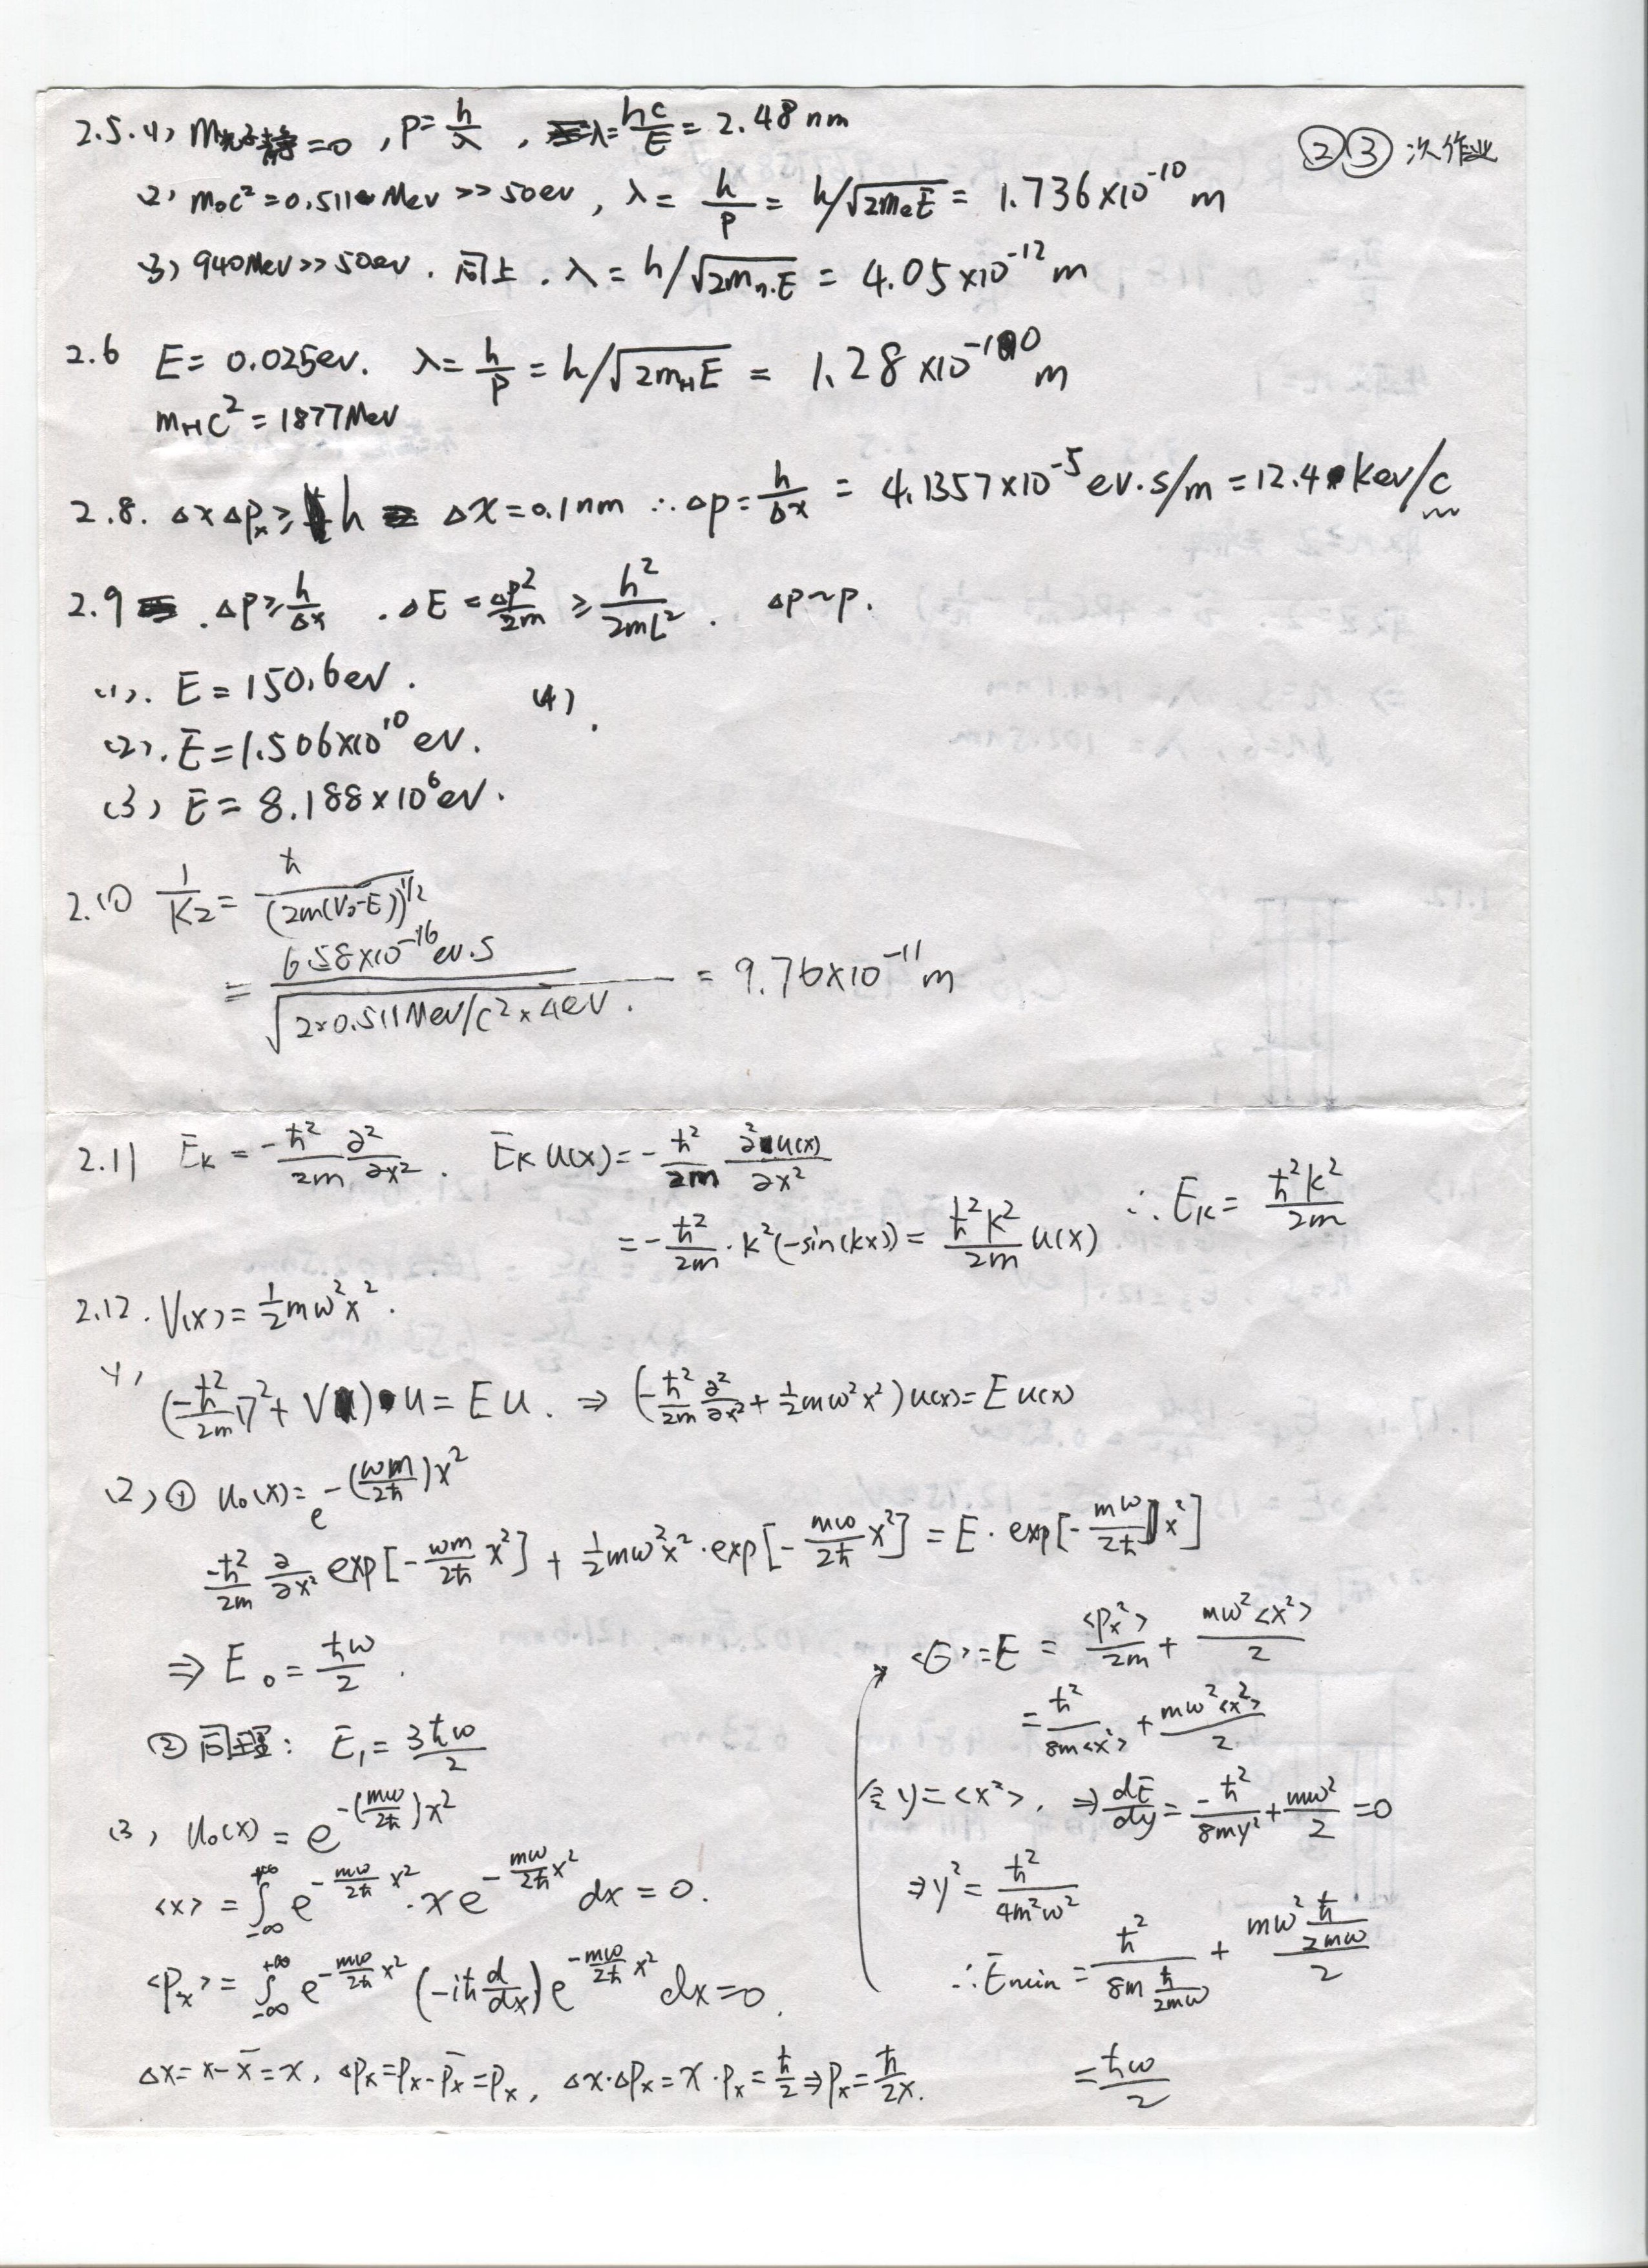 ②③次作业
2.5.(1) m光子静=0, p=h/λ, λ=hc/E=2.48nm
(2) m₀c²=0.511Mev>>50ev, λ=h/p=h/√(2mₑE)=1.736×10⁻¹⁰m
(3) 940Mev>>50ev. 同上. λ=h/√(2mₙ.E)=4.05×10⁻¹²m
2.6 E=0.025ev. λ=h/p=h/√(2m_H E)=1.28×10⁻¹⁰m
m_H c²=1877Mev
2.8. ΔxΔpₓ≥h Δx=0.1nm ∴Δp=h/Δx=4.1357×10⁻⁵ev.s/m=12.4kev/c
2.9 .Δp≥h/Δx .ΔE=Δp²/2m≥h²/2mL². Δp~p.
(1). E=150.6ev. (4).
(2). E=1.506×10¹⁰ev.
(3) E=8.188×10⁶ev.
2.10 1/K₂=ħ/(2m(V₀-E))^1/2
=6.58×10⁻¹⁶ev.s/√(2×0.511Mev/c²×4ev.)=9.76×10⁻¹¹m
2.11 E_k=-ħ²/2m ∂²/∂x². E_k u(x)=-ħ²/2m ∂²u(x)/∂x²
=-ħ²/2m·k²(-sin(kx))=ħ²k²/2m u(x) ∴E_k=ħ²k²/2m
2.12. V(x)=½mω²x².
(1) (-ħ²/2m ∇²+V)u=Eu. ⇒ (-ħ²/2m ∂²/∂x²+½mω²x²)u(x)=Eu(x)
(2) ① u₀(x)=e^-(ωm/2ħ)x²
-ħ²/2m ∂/∂x² exp[-ωm/2ħ x²]+½mω²x²·exp[-mω/2ħ x²]=E·exp[-mω/2ħ x²]
⇒E₀=ħω/2.
② 同理: E₁=3ħω/2
(3) u₀(x)=e^-(mω/2ħ)x²
<x>=∫_-∞^+∞ e^-mω/2ħ x²·x e^-mω/2ħ x² dx=0.
<pₓ>=∫_-∞^+∞ e^-mω/2ħ x² (-iħ d/dx) e^-mω/2ħ x² dx=0.
Δx=x-x̄=x, Δpₓ=pₓ-p̄ₓ=pₓ, Δx·Δpₓ=x·pₓ=ħ/2⇒pₓ=ħ/2x.
<E>=E=<pₓ²>/2m+mω²<x²>/2
=ħ²/8m<x²>+mω²<x²>/2
令y=<x²>, ⇒dE/dy=-ħ²/8my²+mω²/2=0
⇒y²=ħ²/4m²ω²
∴Emin=ħ²/(8m ħ/2mω)+(mω² ħ/2mω)/2
=ħω/2